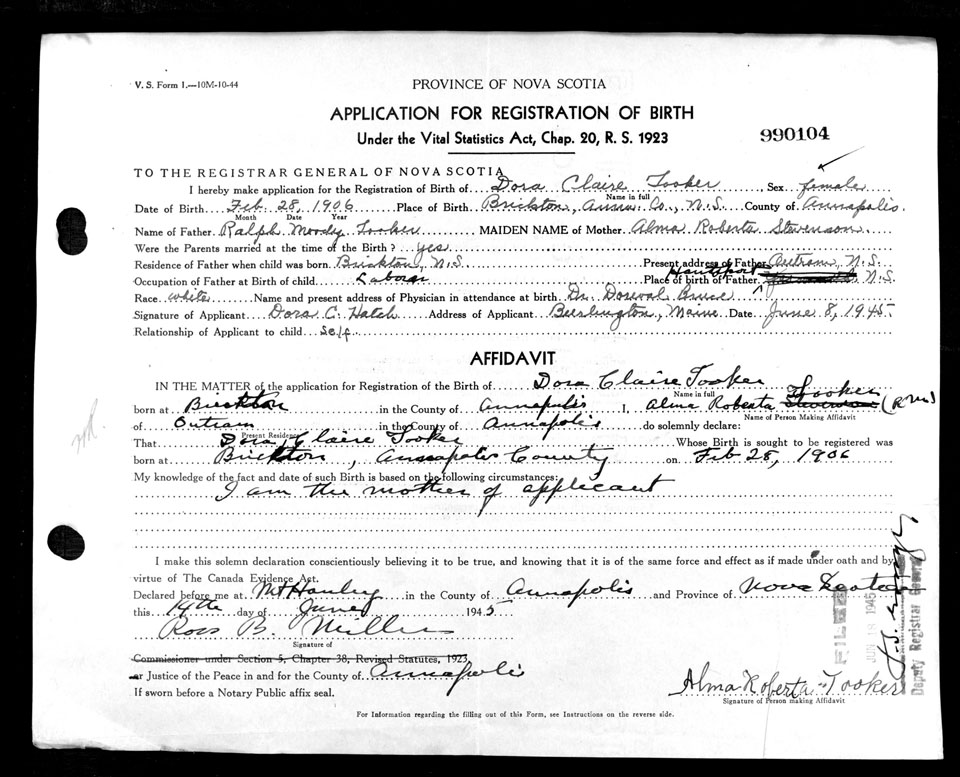 V. S. Form 1.—10M-10-44
PROVINCE OF NOVA SCOTIA
APPLICATION FOR REGISTRATION OF BIRTH
Under the Vital Statistics Act, Chap. 20, R. S. 1923
990104
TO THE REGISTRAR GENERAL OF NOVA SCOTIA
I hereby make application for the Registration of Birth of Dora Claire Tooker Sex female
Name in full
Date of Birth Feb. 28, 1906 Place of Birth Brickton, Anna. Co., N.S. County of Annapolis.
Month Date Year
Name of Father Ralph Moody Tooker MAIDEN NAME of Mother Alma Roberta Stevenson
Were the Parents married at the time of the Birth? yes
Residence of Father when child was born Brickton, N.S. Present address of Father Outram, N.S.
Occupation of Father at Birth of child Labour Place of birth of Father Hantsport N.S.
Race white Name and present address of Physician in attendance at birth Dr.
Signature of Applicant Dora C. Hatch Address of Applicant Burlington, Maine Date June 8, 1945
Relationship of Applicant to child self
AFFIDAVIT
IN THE MATTER of the application for Registration of the Birth of Dora Claire Tooker
Name in full
born at Brickton in the County of Annapolis I, Alma Roberta Stevenson Tooker (RBM)
Name of Person Making Affidavit
of Outram in the County of Annapolis do solemnly declare:
Present Residence
That Dora Claire Tooker Whose Birth is sought to be registered was
born at Brickton, Annapolis County on Feb 28, 1906
My knowledge of the fact and date of such Birth is based on the following circumstances:
I am the mother of applicant
I make this solemn declaration conscientiously believing it to be true, and knowing that it is of the same force and effect as if made under oath and by
virtue of The Canada Evidence Act.
Declared before me at Mt Hanley in the County of Annapolis and Province of Nova Scotia
this 14th day of June 1945
Ross B. Miller
Signature of
Commissioner under Section 5, Chapter 38, Revised Statutes, 1923
or Justice of the Peace in and for the County of Annapolis
If sworn before a Notary Public affix seal.
Alma Roberta Tooker
Signature of Person making Affidavit
FILED
JUN 18 1945
Deputy Registrar General
For Information regarding the filling out of this Form, see Instructions on the reverse side.